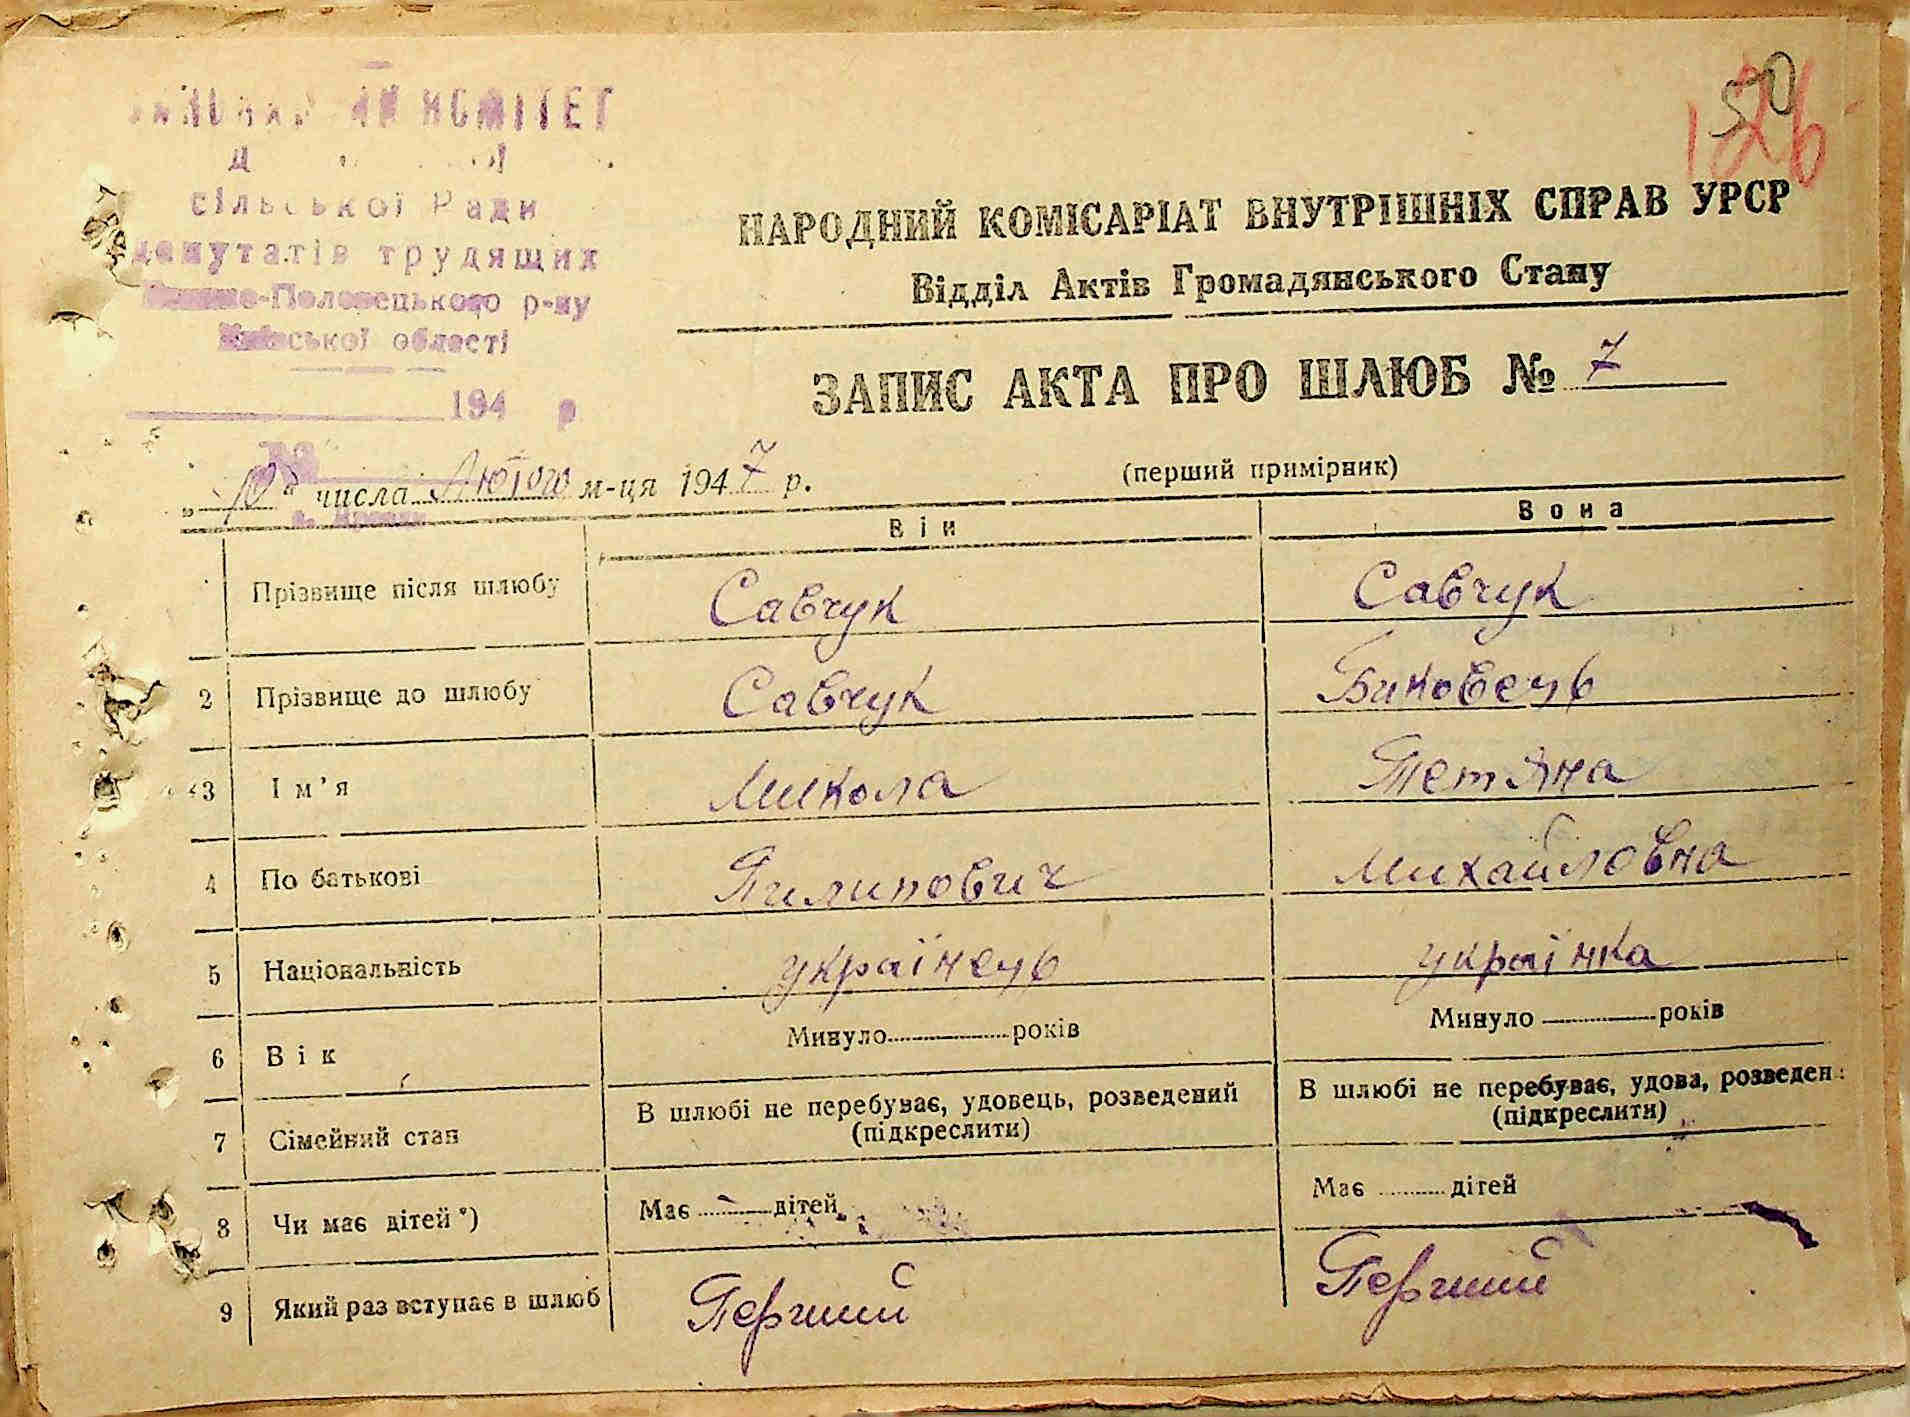 КОМІТЕТ
сільської Ради
депутатів трудящих
-Половецького р-ну
Київської області
194 р
50
126
НАРОДНИЙ КОМІСАРІАТ ВНУТРІШНІХ СПРАВ УРСР
Відділ Актів Громадянського Стану
ЗАПИС АКТА ПРО ШЛЮБ № 7
„10“ числа Лютого м-ця 1947 р.
(перший примірник)
Він Вона
Прізвище після шлюбу Савчук Савчук
2 Прізвище до шлюбу Савчук Биковець
3 Ім'я Микола Тетяна
4 По батькові Пилипович Михайловна
5 Національність українець українка
6 Вік Минуло років Минуло років
7 Сімейний стан В шлюбі не перебуває, удовець, розведений (підкреслити) В шлюбі не перебуває, удова, розведен (підкреслити)
8 Чи має дітей*) Має - дітей Має дітей
9 Який раз вступає в шлюб Перший Перший